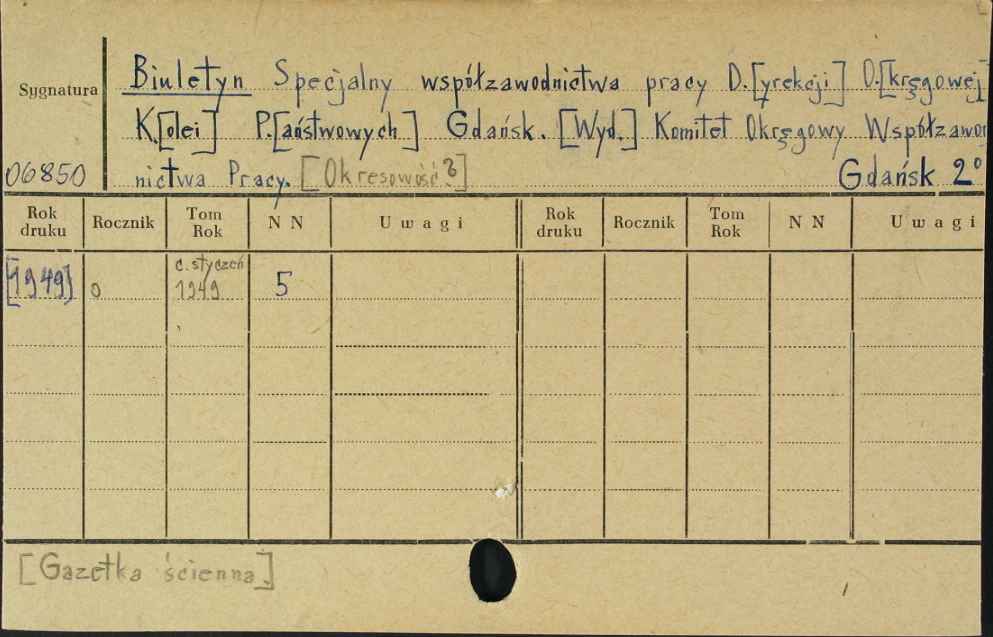 Sygnatura
06850
Biuletyn Specjalny współzawodnictwa pracy D.[yrekcji] O.[kręgowej]
K.[olei] P.[aństwowych] Gdańsk. [Wyd.] Komitet Okręgowy Współzawod
nictwa Pracy. [Okresowość?] Gdańsk 2°
Rok druku Rocznik Tom Rok N N Uwagi Rok druku Rocznik Tom Rok N N Uwagi
[1949] 0 c. styczeń 1949 5
[Gazetka ścienna]